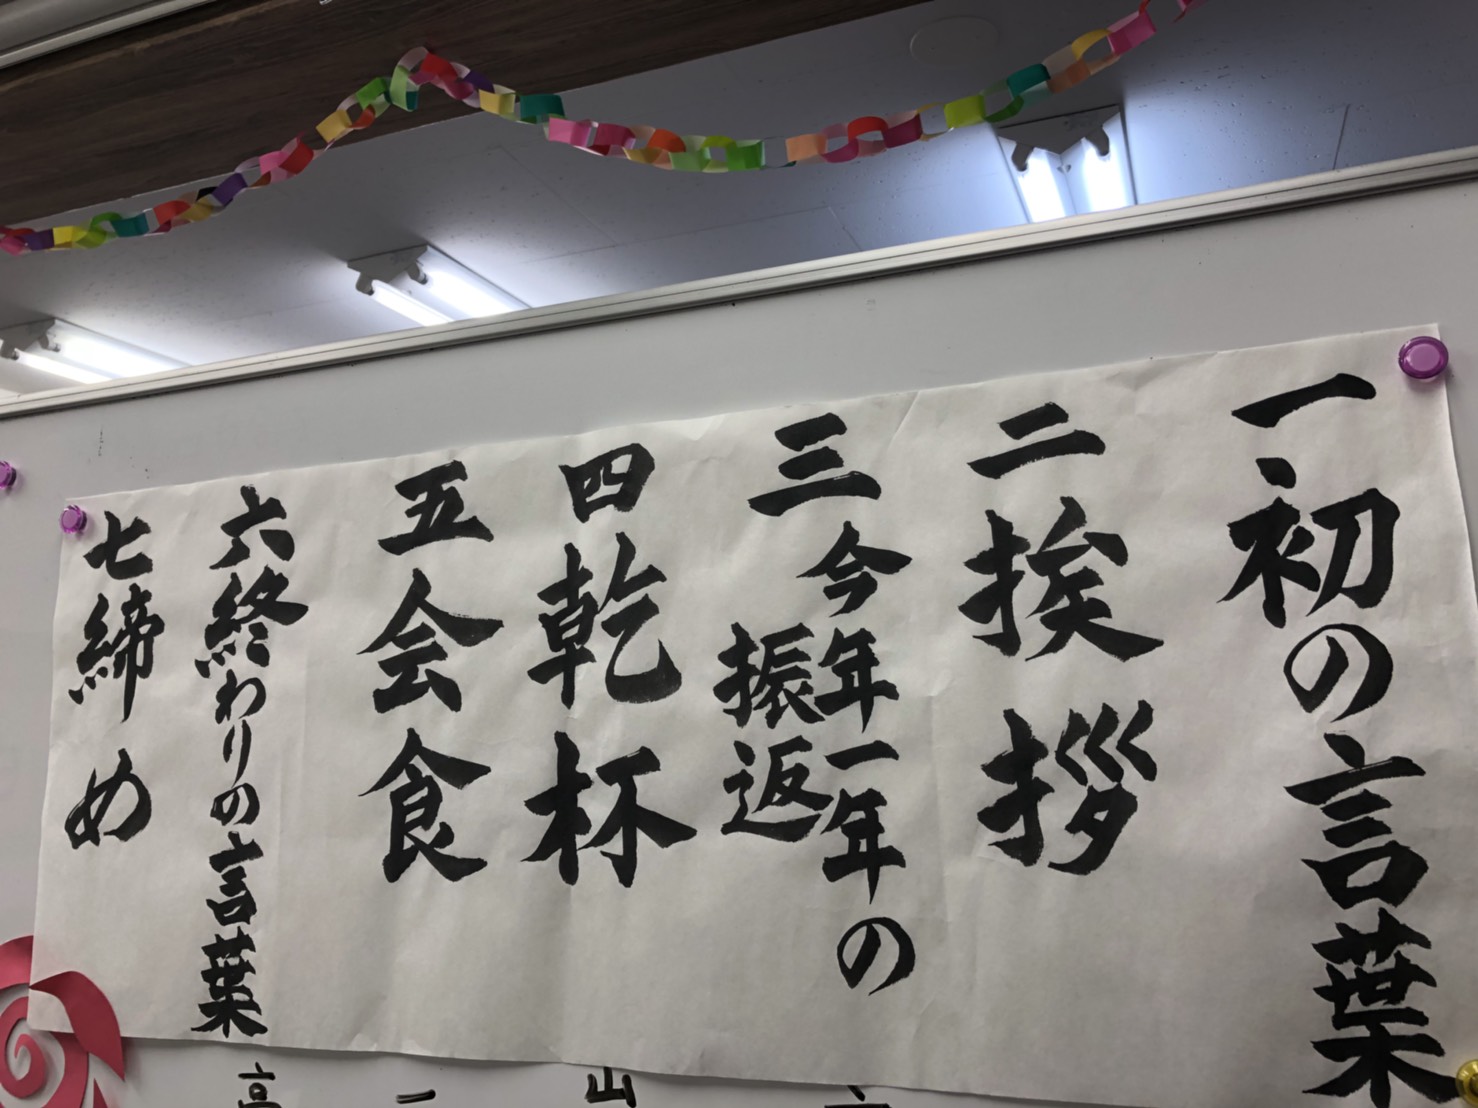 一初の言葉
二挨拶
三今年一年の
振返
四乾杯
五会食
六終わりの言葉
七締め
山
一
高